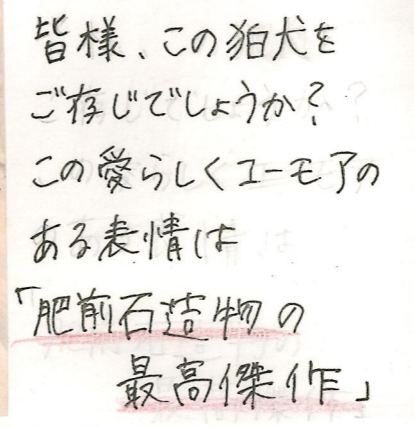 皆様、この狛犬を
ご存じでしょうか?
この愛らしくユーモアの
ある表情は
「肥前石造物の
最高傑作」